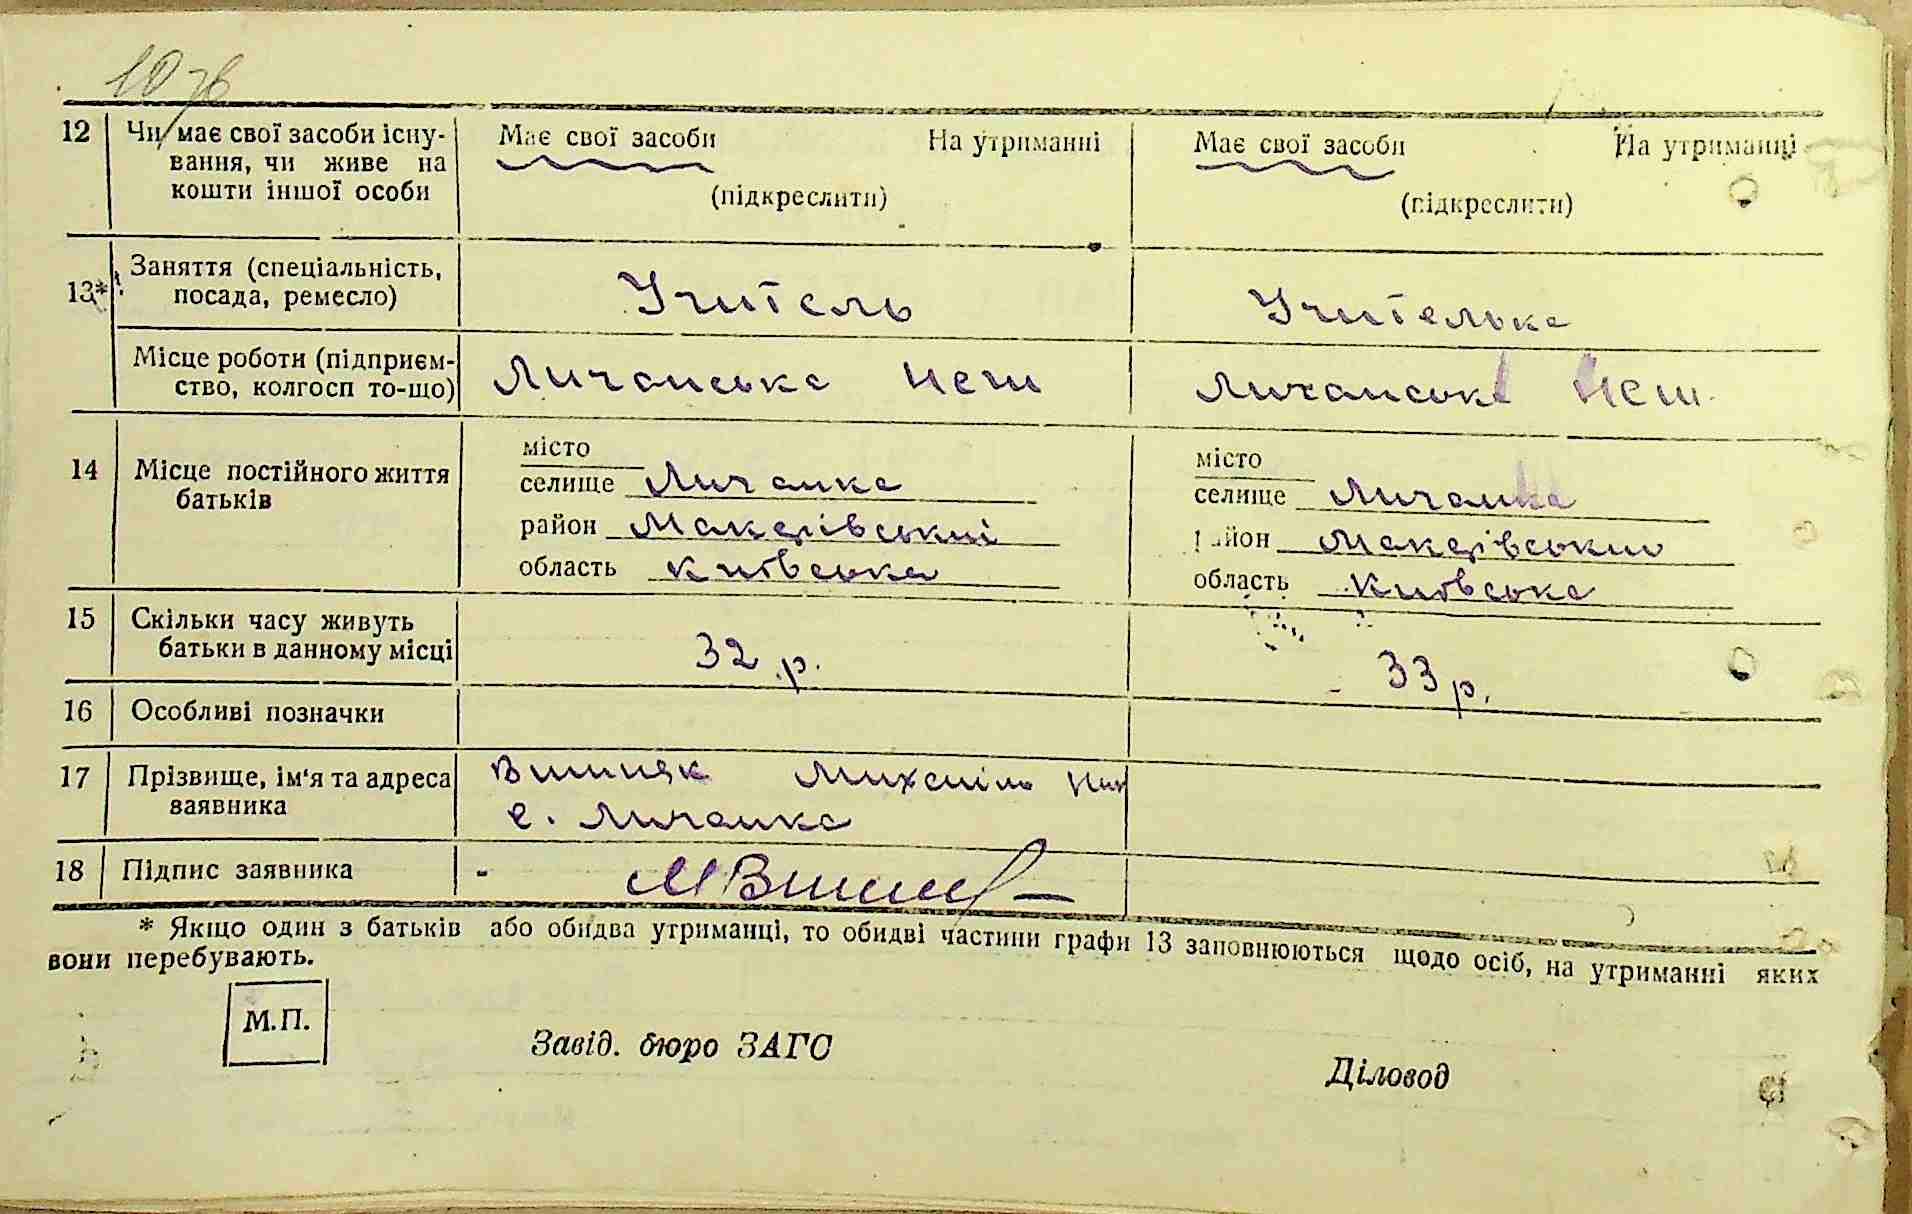 10 зв
12 Чи має свої засоби існу- Має свої засоби На утриманні Має свої засоби На утриманні
вання, чи живе на
кошти іншої особи (підкреслити) (підкреслити)
13* Заняття (спеціальність,
посада, ремесло) Учитель Учителька
Місце роботи (підприєм-
ство, колгосп то-що) Личанська НСШ Личанська НСШ
14 Місце постійного життя
батьків
місто місто
селище Личанка селище Личанка
район Макарівський район Макарівський
область Київська область Київська
15 Скільки часу живуть
батьки в данному місці 32 р. 33 р.
16 Особливі позначки
17 Прізвище, ім'я та адреса Вишняк Михаіль
заявника с. Личанка
18 Підпис заявника - МВишн
* Якщо один з батьків або обидва утриманці, то обидві частини графи 13 заповнюються щодо осіб, на утриманні яких
вони перебувають.
М.П.
Завід. бюро ЗАГС
Діловод